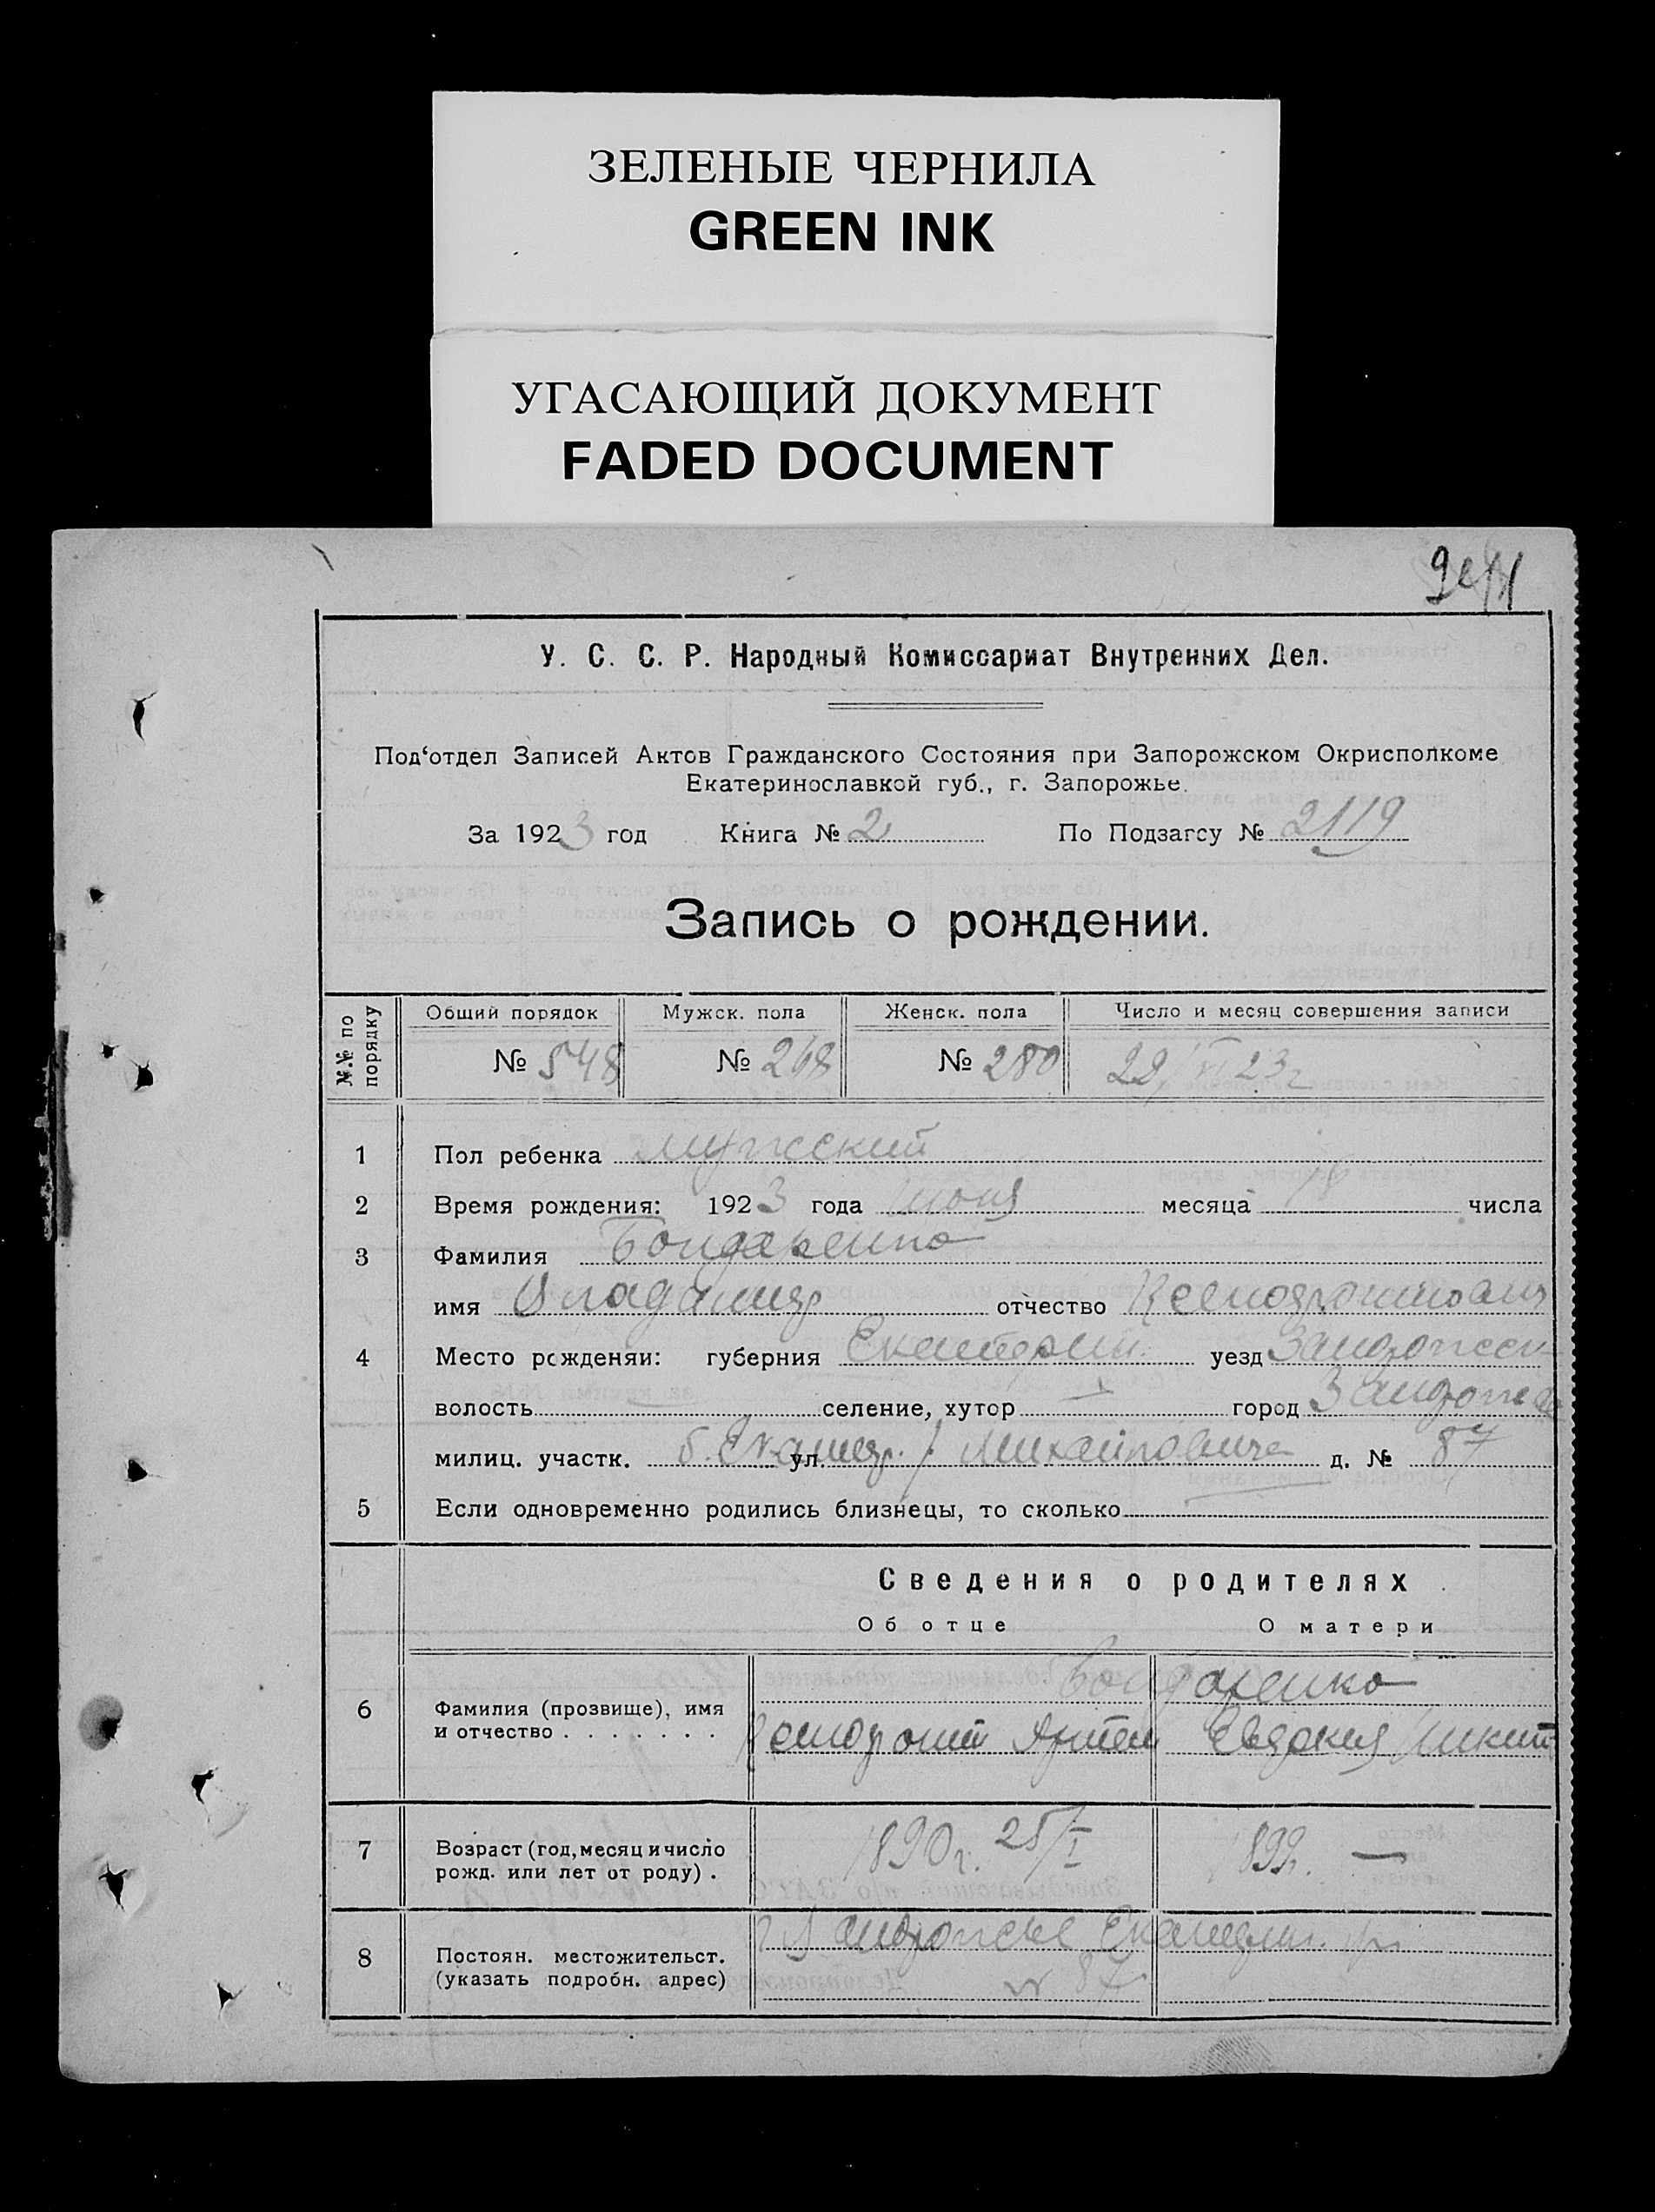 ЗЕЛЕНЫЕ ЧЕРНИЛА
GREEN INK
УГАСАЮЩИЙ ДОКУМЕНТ
FADED DOCUMENT
У. С. С. Р. Народный Комиссариат Внутренних Дел.
Под‘отдел Записей Актов Гражданского Состояния при Запорожском Окрисполкоме
Екатеринославкой губ., г. Запорожье.
За 1923 год Книга № 2 По Подзагсу № 2119
Запись о рождении.
№.№ по порядку Общий порядок Мужск. пола Женск. пола Число и месяц совершения записи
№ 548 № 268 № 280 22/VI 23г
1 Пол ребенка мужский
2 Время рождения: 1923 года июня месяца 18 числа
3 Фамилия Бондаренко
имя Владимир отчество
4 Место рожденяи: губерния Екатерин. уезд Запорожск
волость селение, хутор город Запорожье
милиц. участк. ул. Михайловича д. № 87
5 Если одновременно родились близнецы, то сколько
Сведения о родителях
Об отце О матери
6 Фамилия (прозвище), имя и отчество . . . . . . . Бондаренко
Артем Евдокия Никит
7 Возраст (год, месяц и число рожд. или лет от роду) . 1890г. 25/I 1899г. —
8 Постоян. местожительст. (указать подробн. адрес) г. Запорожье Екатерин.
№ 87